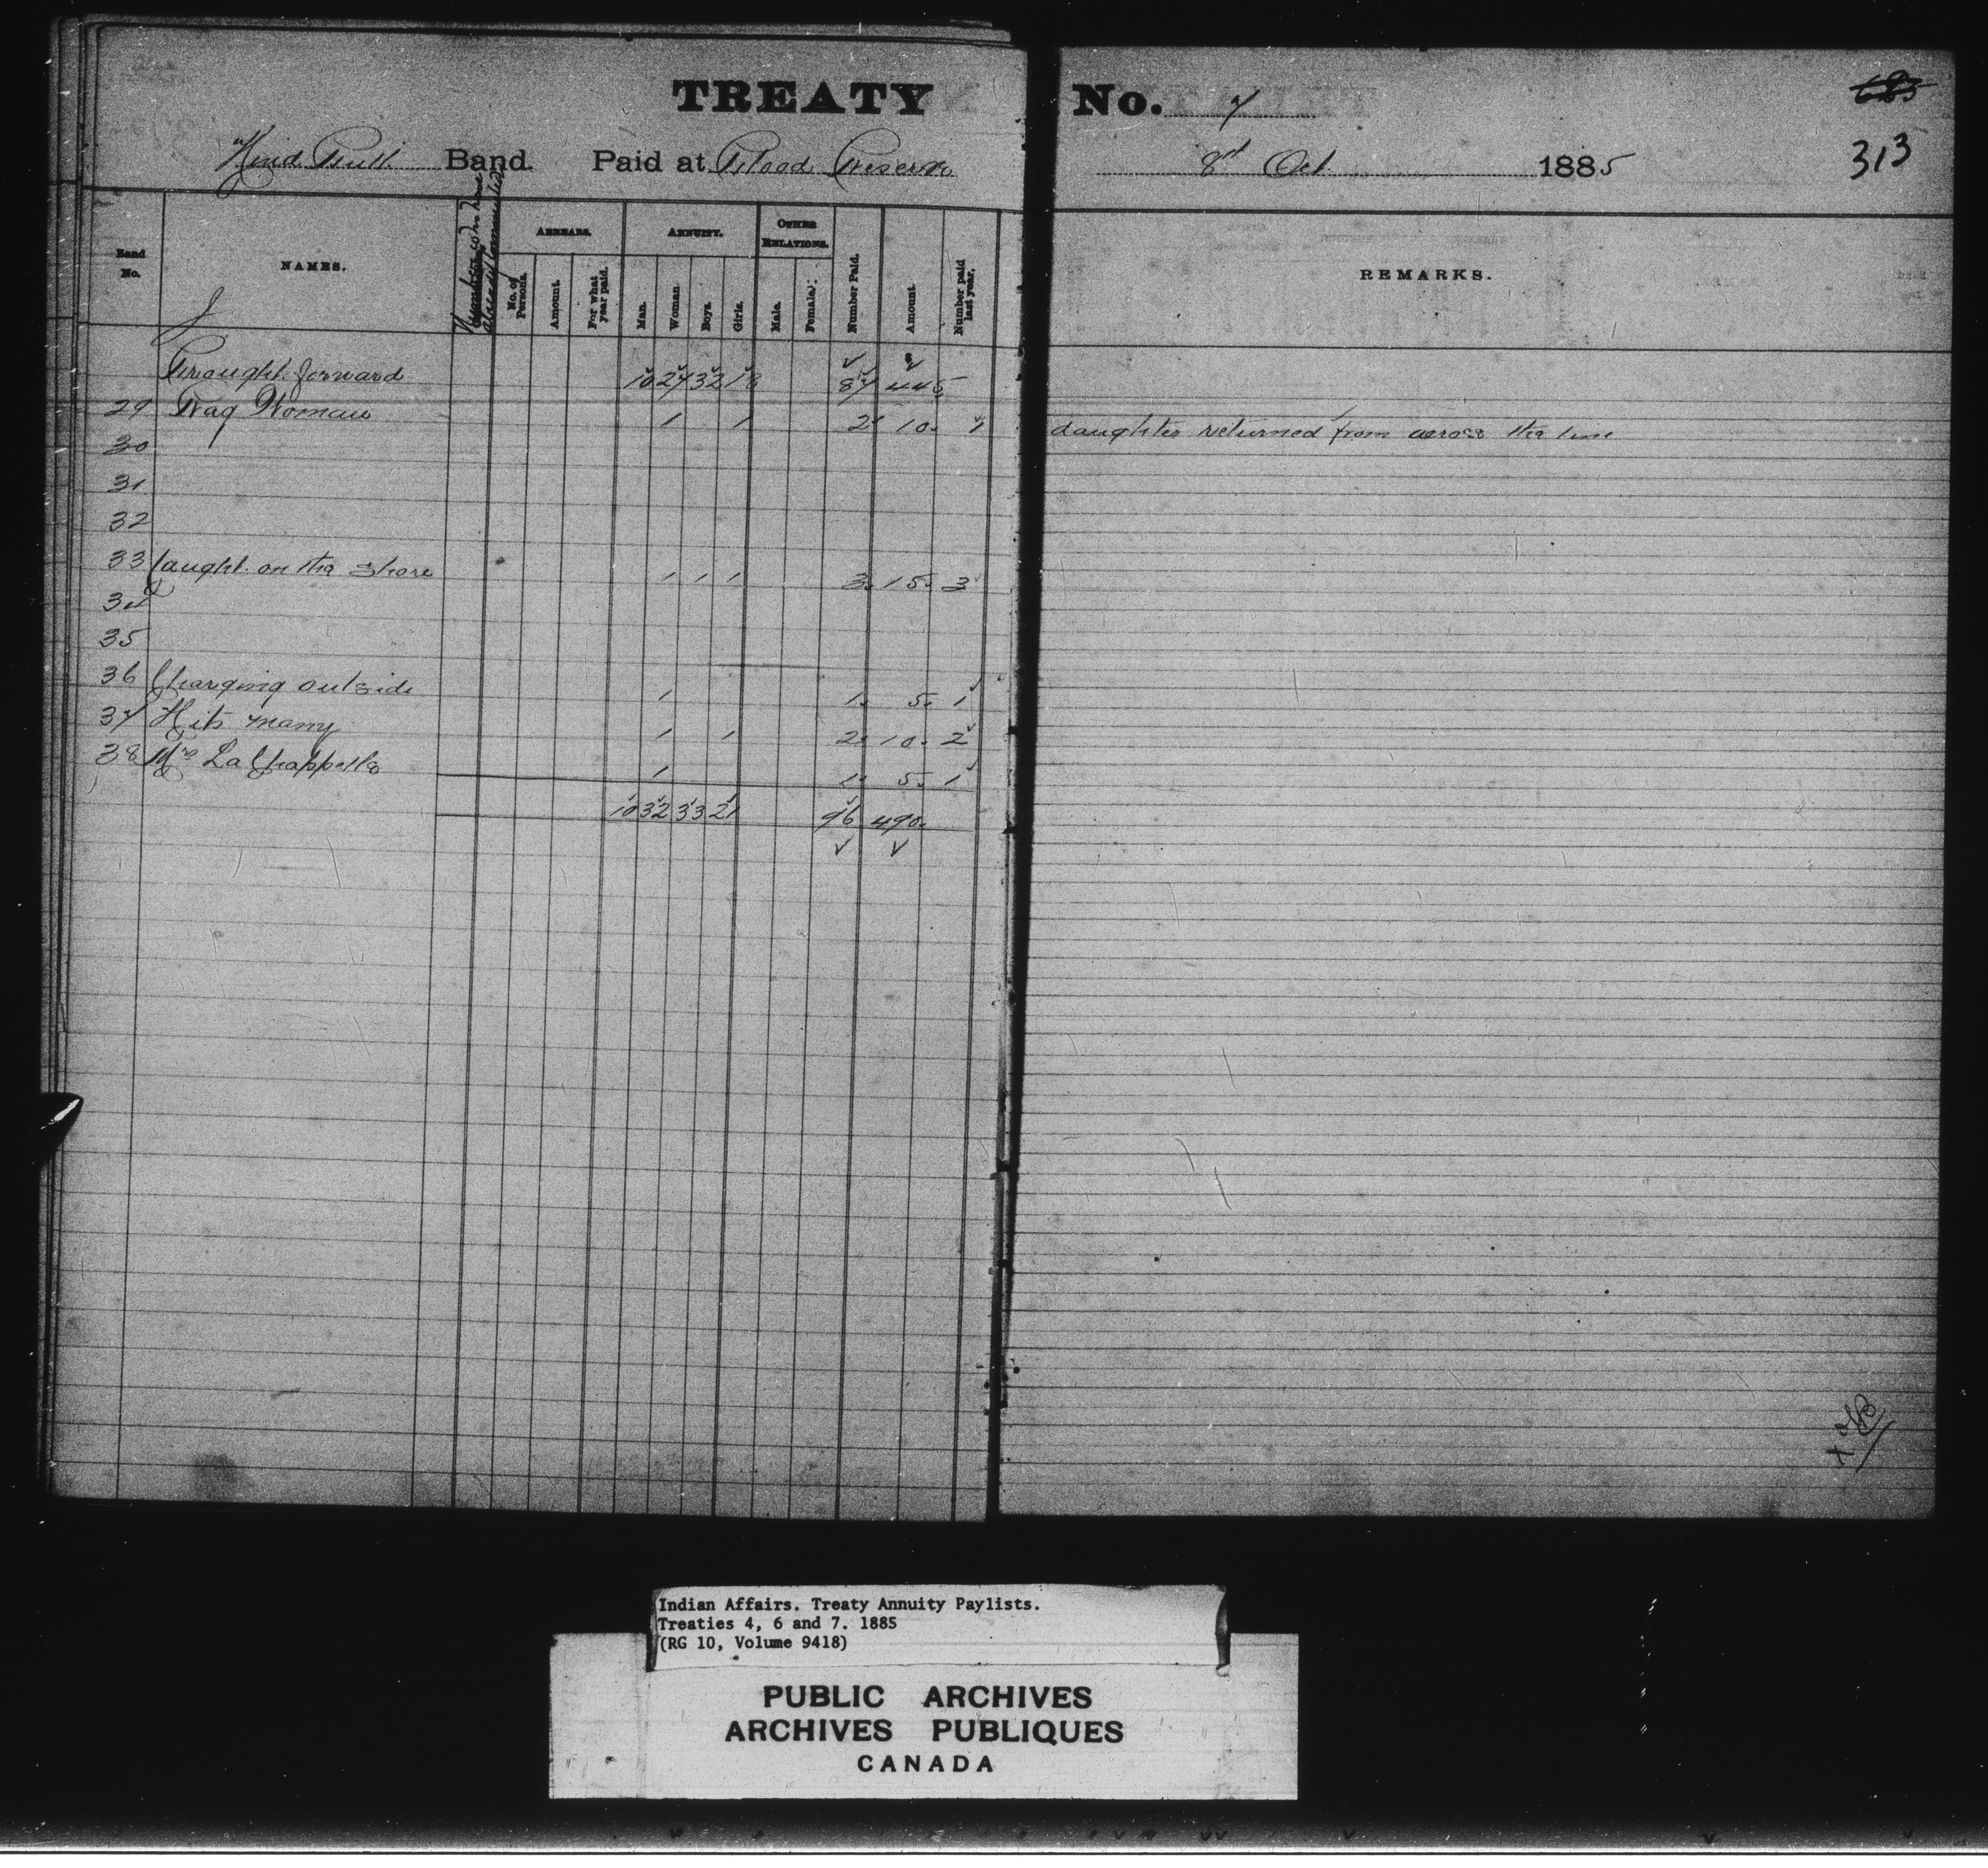 TREATY No. 7
685
313
Wind Bull Band. Paid at Blood Reserve 8th Oct 1885
Band No.
NAMES.
ARREARS.
No. of Persons.
Amount.
For what year paid.
ANNUITY.
Man.
Woman
Boys.
Girls.
OTHER RELATIONS.
Male.
Female.
Number Paid.
Amount.
Number paid last year.
REMARKS.
Brought forward 10 27 32 18 87 445
29 Rag Woman 1 1 2 10. 1 daughter returned from across the line
30
31
32
33 Caught on the shore 1 1 1 3. 15. 3
34
35
36 Charging outside 1 1. 5. 1
37 Hits many 1 1 2. 10. 2
38 Mrs LaChappelle 1 1. 5. 1
10 32 33 21 96 490.
Indian Affairs. Treaty Annuity Paylists.
Treaties 4, 6 and 7. 1885
(RG 10, Volume 9418)
PUBLIC ARCHIVES
ARCHIVES PUBLIQUES
CANADA